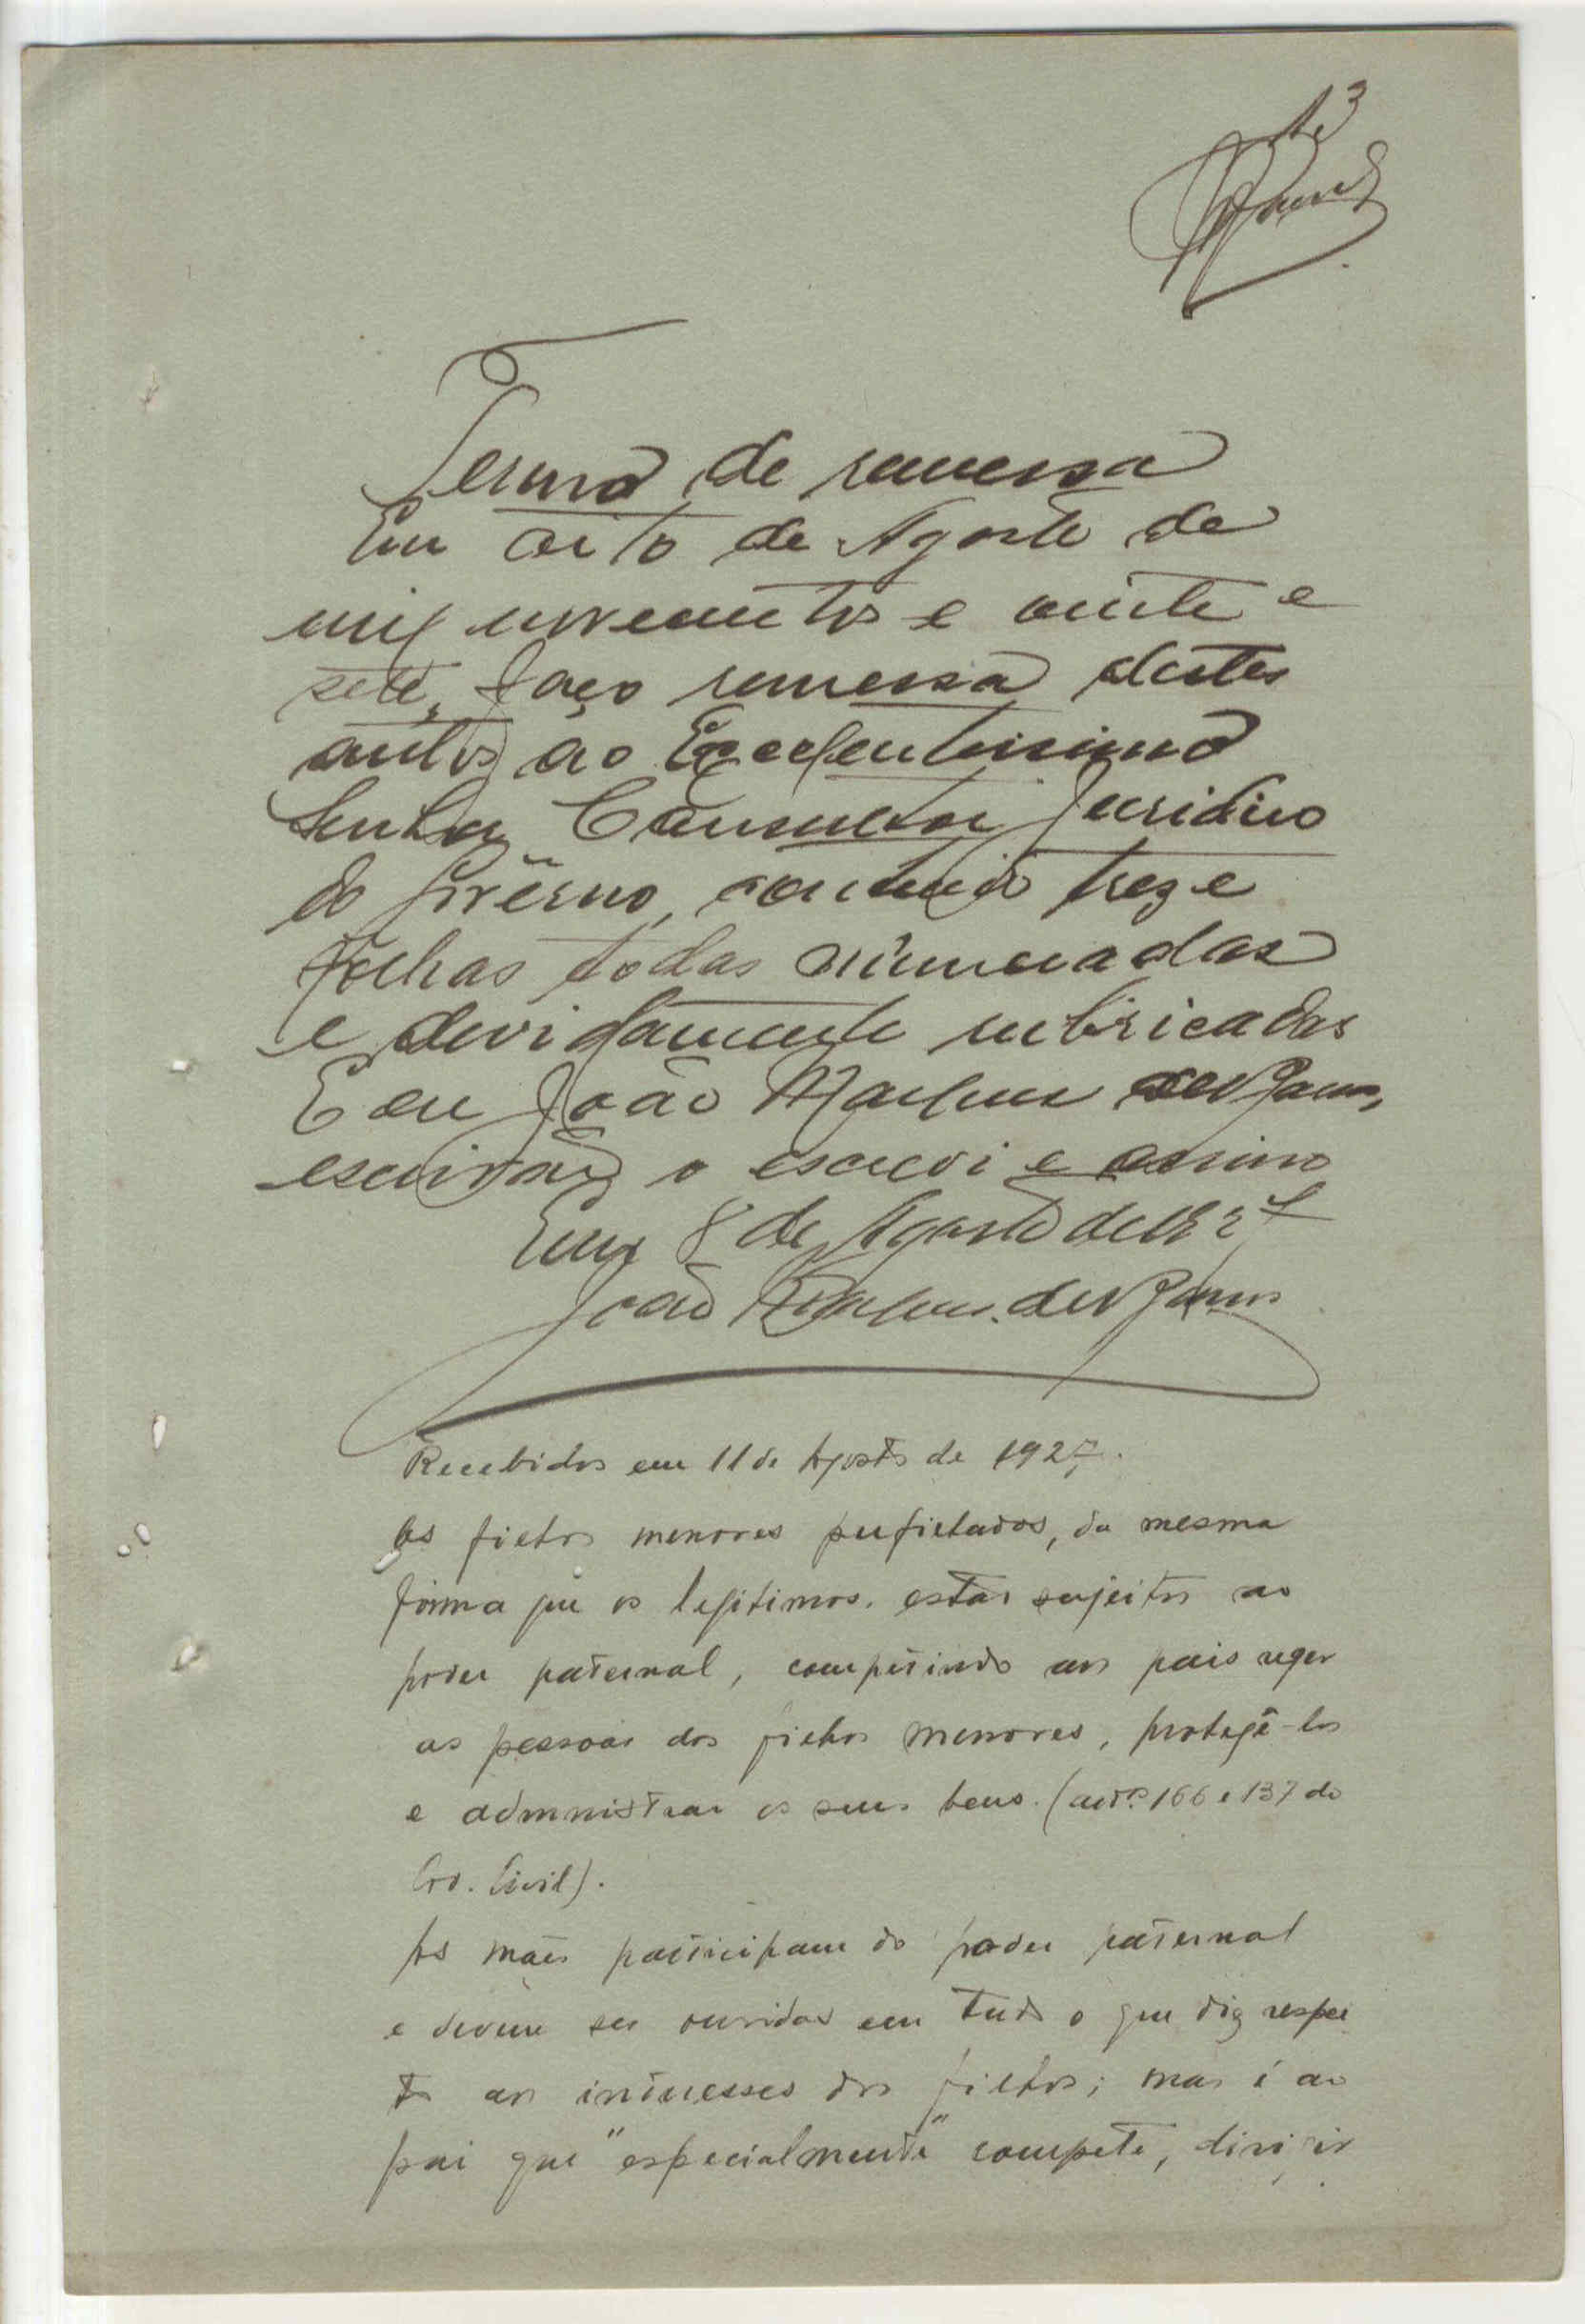 13
Termo de remessa
Em oito de Agosto de
mil novecentos e vinte e
sete, faço remessa destes
autos ao Excelentissimo
Senhor Consultor Juridico
do Govêrno, contendo treze
folhas todas numeradas
e devidamente rubricadas
E eu João
escrivão o escrevi e assino
Em 8 de Agosto de 1927
João
Recebidos em 11 de Agosto de 1927.
Os filhos menores perfilhados, da mesma
forma que os legitimos, estão sujeitos ao
poder paternal, competindo aos pais reger
as pessoas dos filhos menores, protegê-los
e administrar os seus bens. (artºs 166 e 137 do
Cod. Civil).
As mães participam do poder paternal
e devem ser ouvidas em tudo o que diz respei
to aos interesses dos filhos; mas é ao
pai que "especialmente" compete, dirigir